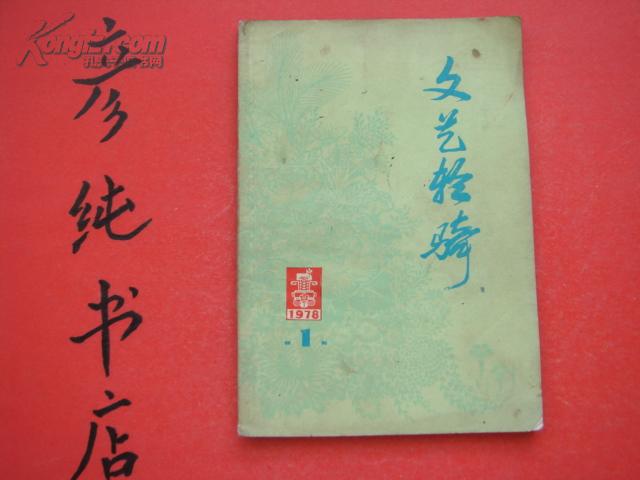 Kongfz.com
孔夫子旧书网
彦纯书店
文艺轻骑
1978
1